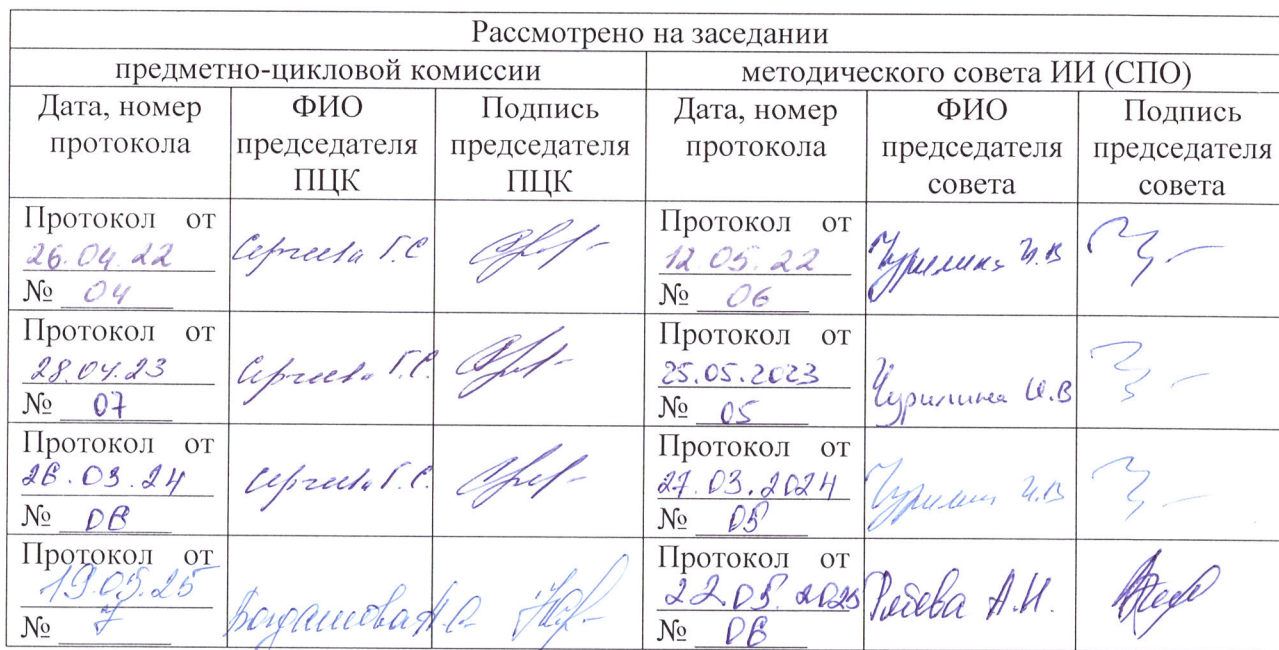 Рассмотрено на заседании
предметно-цикловой комиссии методического совета ИИ (СПО)
Дата, номер протокола ФИО председателя ПЦК Подпись председателя ПЦК Дата, номер протокола ФИО председателя совета Подпись председателя совета
Протокол от
26.04.22
№ 04
Сергеева Г.С
Протокол от
12 05.22
№ 06
Чурилина И.В
Протокол от
28.04.23
№ 07
Сергеева Г.С.
Протокол от
25.05.2023
№ 05
Чурилина И.В
Протокол от
26.03.24
№ 06
Сергеева Г.С.
Протокол от
27.03.2024
№ 05
Чурилина И.В
Протокол от
19.05.25
№ 7
Протокол от
22.05.2025
№ 06
А.Н.